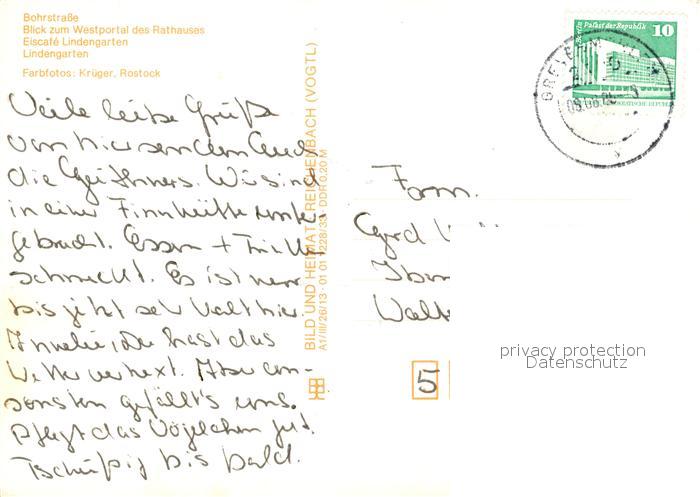 Bohrstraße
Blick zum Westportal des Rathauses
Eiscafé Lindengarten
Lindengarten
Farbfotos: Krüger, Rostock
Viele liebe Grüße
von hier senden Euch
die Geithners. Wir sind
in einer Finnhütte unter-
gebracht. Essen + Trinken
schmeckt. Es ist nur
bis jetzt sehr kalt hier.
Annelie, Du hast das
Wetter verhext. Aber an-
sonsten gefällt's uns.
Pflegt das Vögelchen gut.
Tschüßig bis bald.
BILD UND HEIMAT REICHENBACH (VOGTL)
A1/III/26/13 · 01 01 228/33 DDR 0,20 M
Berlin Palast der Republik
10
Fam.
Gerd
5
privacy protection
Datenschutz